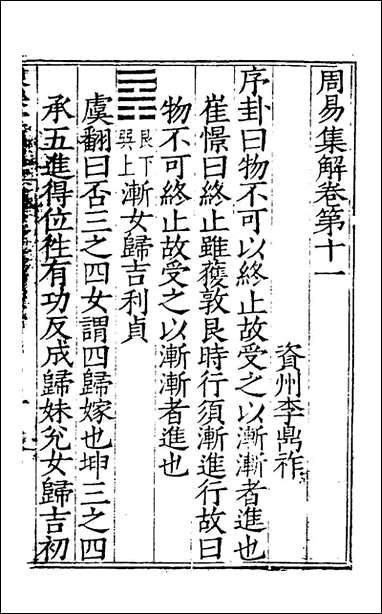 周易集解卷第十一
資州李鼎祚
序卦曰物不可以終止故受之以漸漸者進也
崔憬曰終止雖獲敦艮時行須漸進行故曰
物不可終止故受之以漸漸者進也
艮下
巽上
漸女歸吉利貞
虞翻曰否三之四女謂四歸嫁也坤三之四
承五進得位往有功反成歸妹兊女歸吉初